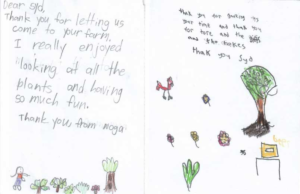 Dear Syd,
Thank you for letting us
come to your farm.
I really enjoyed
looking at all the
plants and having
so much fun.
Thank you from
thank you for
your time and thank you
for and the
and the
thank you Syd